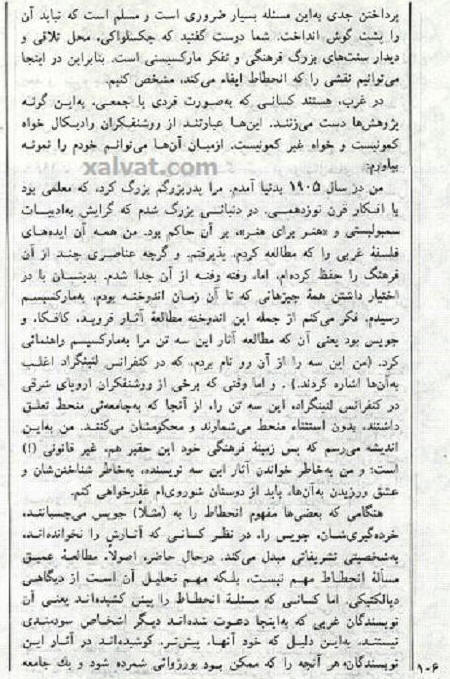 پرداختن جدی به‌این مسئله بسیار ضروری است و مسلم است که نباید آن
را پشت گوش انداخت. شما دوست گفتید که چکسلواکی، محل تلاقی و
دیدار سنت‌های بزرگ فرهنگی و تفکر مارکسیستی است. بنابراین در اینجا
می‌توانیم نقشی را که انحطاط ایفاء می‌کند، مشخص کنیم.
در غرب، هستند کسانی که به‌صورت فردی یا جمعی، به‌این گونه
پژوهش‌ها دست می‌زنند. این‌ها عبارتند از روشنفکران رادیکال خواه
کمونیست و خواه غیر کمونیست. ازمیان آن‌ها می‌توانم خودم را نمونه
بیاورم:
xalvat.com
من در سال ۱۹۰۵ بدنیا آمدم. مرا پدربزرگم بزرگ کرد، که معلمی بود
با افکار قرن نوزدهمی. در دنیائی بزرگ شدم که گرایش به‌ادبیات
سمبولیستی و «هنر برای هنر»، بر آن حاکم بود. من همه آن ایده‌های
فلسفهٔ غربی را که مطالعه کردم، پذیرفتم. و گرچه عناصری چند از آن
فرهنگ را حفظ کرده‌ام، اما، رفته رفته از آن جدا شدم. بدینسان با در
اختیار داشتن همهٔ چیزهائی که تا آن زمان اندوخته بودم، به‌مارکسیسم
رسیدم. فکر می‌کنم از جمله این اندوخته مطالعهٔ آثار فروید، کافکا، و
جویس بود یعنی آن که مطالعه آثار این سه تن مرا به‌مارکسیسم راهنمائی
کرد. (من این سه را از آن رو نام بردم، که در کنفرانس لنینگراد اغلب
به‌آن‌ها اشاره کردند.) . و اما وقتی که برخی از روشنفکران اروپای شرقی
در کنفرانس لنینگراد، این سه تن را، از آنجا که به‌جامعه‌ئی منحط تعلق
داشتند، بدون استثناء منحط می‌شمارند و محکومشان می‌کنند. من به‌این
اندیشه می‌رسم که پس زمینهٔ فرهنگی خود این حقیر هم، غیر قانونی (!)
است؛ و من به‌خاطر خواندن آثار این سه نویسنده، به‌خاطر شناختن‌شان و
عشق ورزیدن به‌آن‌ها، باید از دوستان شوروی‌ام عذرخواهی کنم.
هنگامی که بعضی‌ها مفهوم انحطاط را به (مثلاً) جویس می‌چسبانند،
خرده‌گیری‌شان، جویس را، در نظر کسانی که آثارش را نخوانده‌اند،
به‌شخصیتی تشریفاتی مبدل می‌کند. درحال حاضر، اصولاً، مطالعهٔ عمیق
مسألهٔ انحطاط مهم نیست، بلکه مهم تحلیل آن است از دیدگاهی
دیالکتیکی. اما کسانی که مسئلهٔ انحطاط را پیش کشیده‌اند یعنی آن
نویسندگان غربی که به‌اینجا دعوت شده‌اند دیگر اشخاص سودمندی
نیستند. به‌این دلیل که خود آنها، پیش‌تر، کوشیده‌اند در آثار این
نویسندگان، هر آنچه را که ممکن بود بورژوائی شمرده شود و یك جامعه
۱۰۶